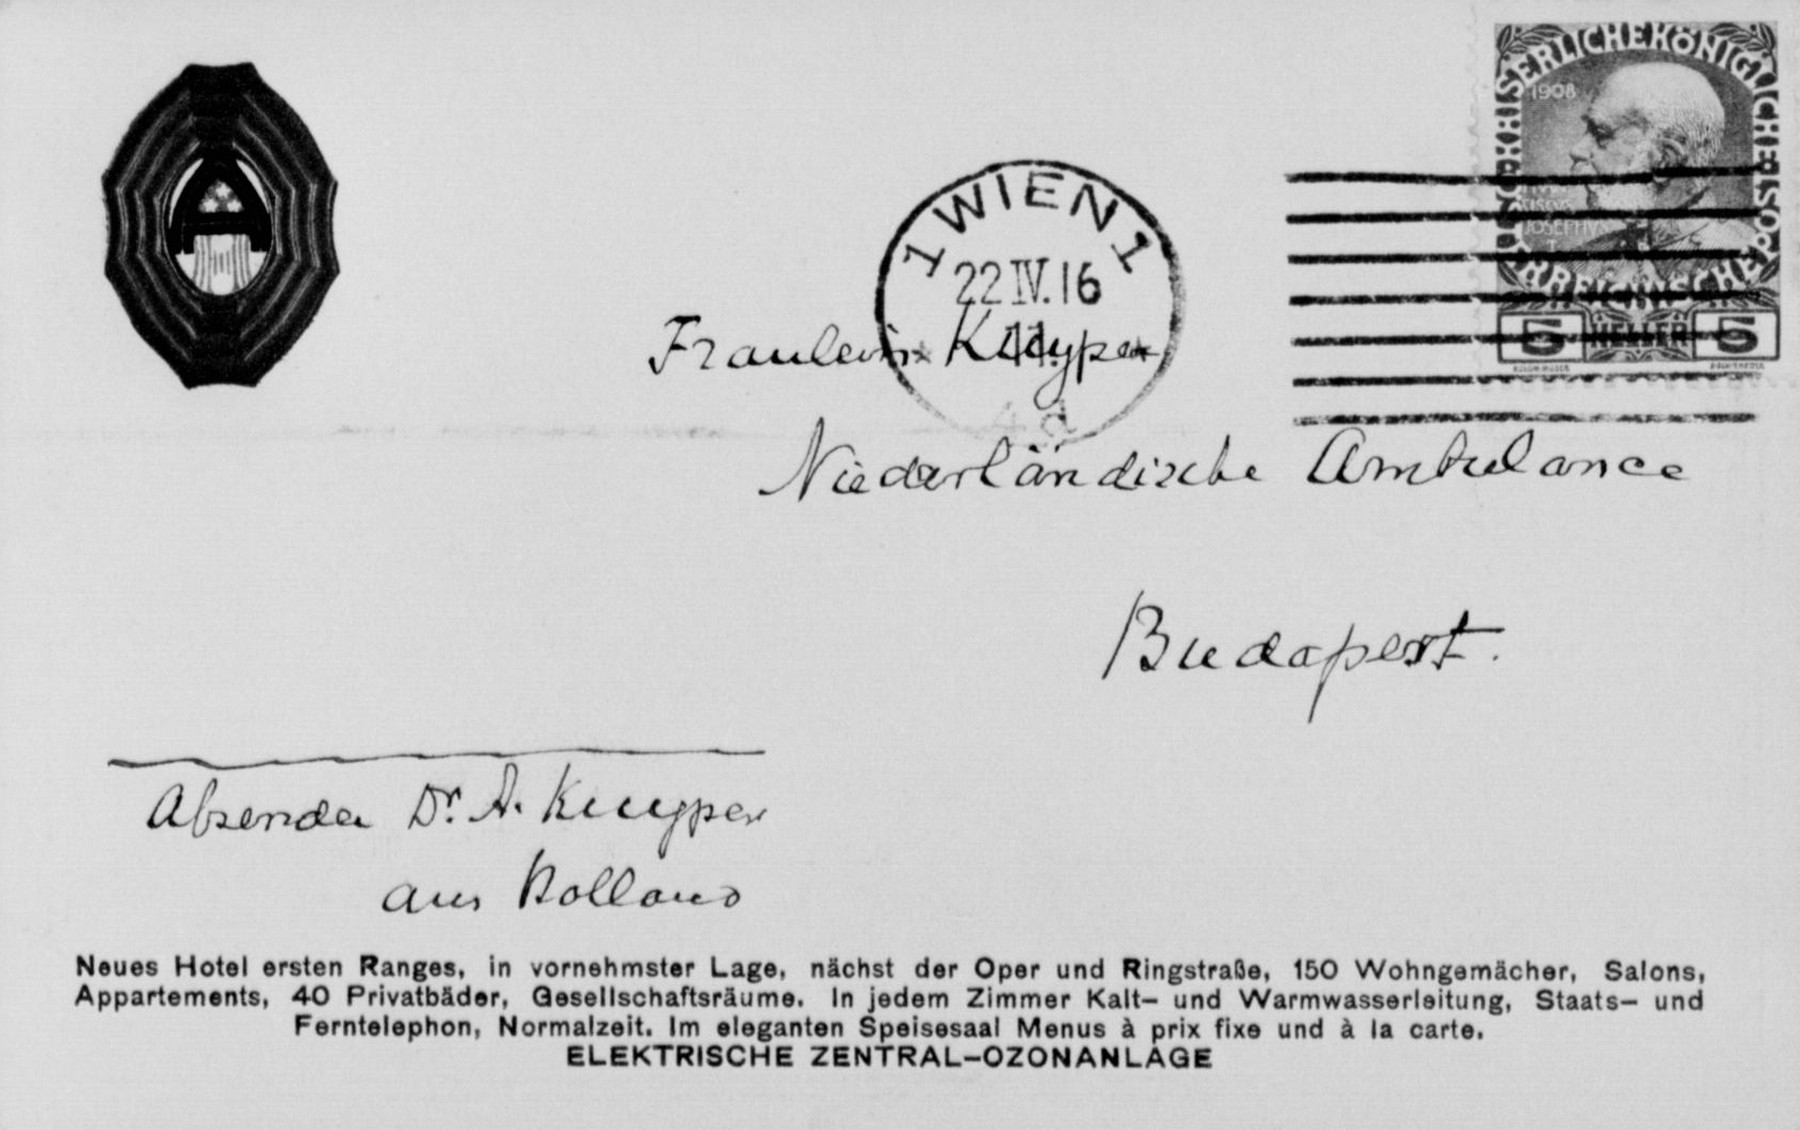 KAISERLICHE KÖNIGLICHE ÖSTERREICHISCHE POST
1908
JOSEPHUS
5 HELLER 5
1 WIEN 1
22 IV. 16
Fraulein Kuyper
Niederländische Ambulance
Budapest.
Absender Dr. A. Kuyper
aus Holland
Neues Hotel ersten Ranges, in vornehmster Lage, nächst der Oper und Ringstraße, 150 Wohngemächer, Salons,
Appartements, 40 Privatbäder, Gesellschaftsräume. In jedem Zimmer Kalt- und Warmwasserleitung, Staats- und
Ferntelephon, Normalzeit. Im eleganten Speisesaal Menus à prix fixe und à la carte.
ELEKTRISCHE ZENTRAL-OZONANLAGE